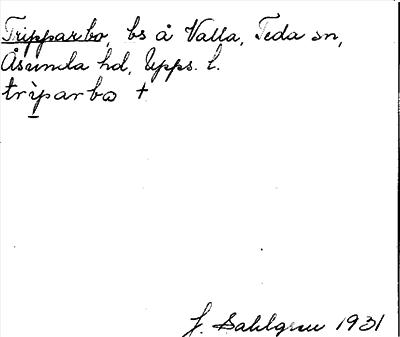 Tripparbo, bs å Valla, Teda sn,
Åsunda hd, Upps. l.
trìparbω +
J. Sahlgren 1931